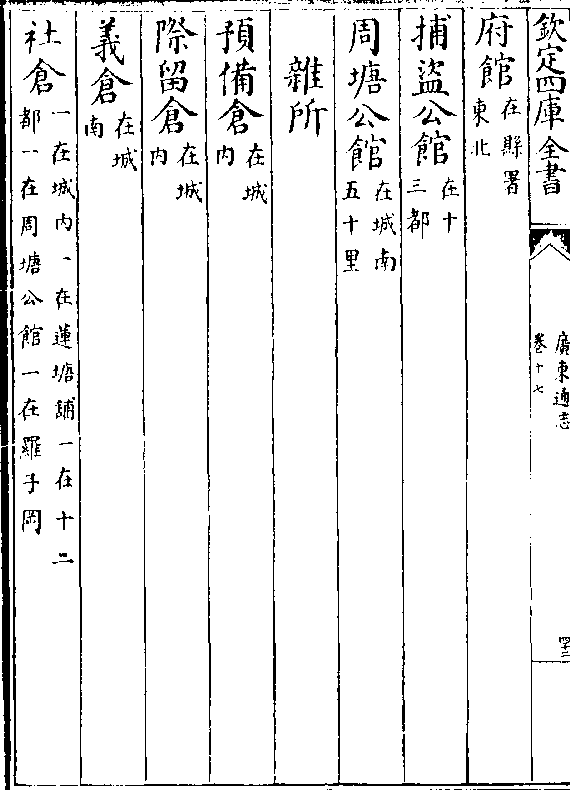 欽定四庫全書
廣東通志
卷十七
四十二
府館在縣署東北
捕盜公館在十三都
周塘公館在城南五十里
雜所
預備倉在城内
際留倉在城内
義倉在城南
社倉一在城内一在蓮塘舖一在十二都一在周塘公館一在羅子岡